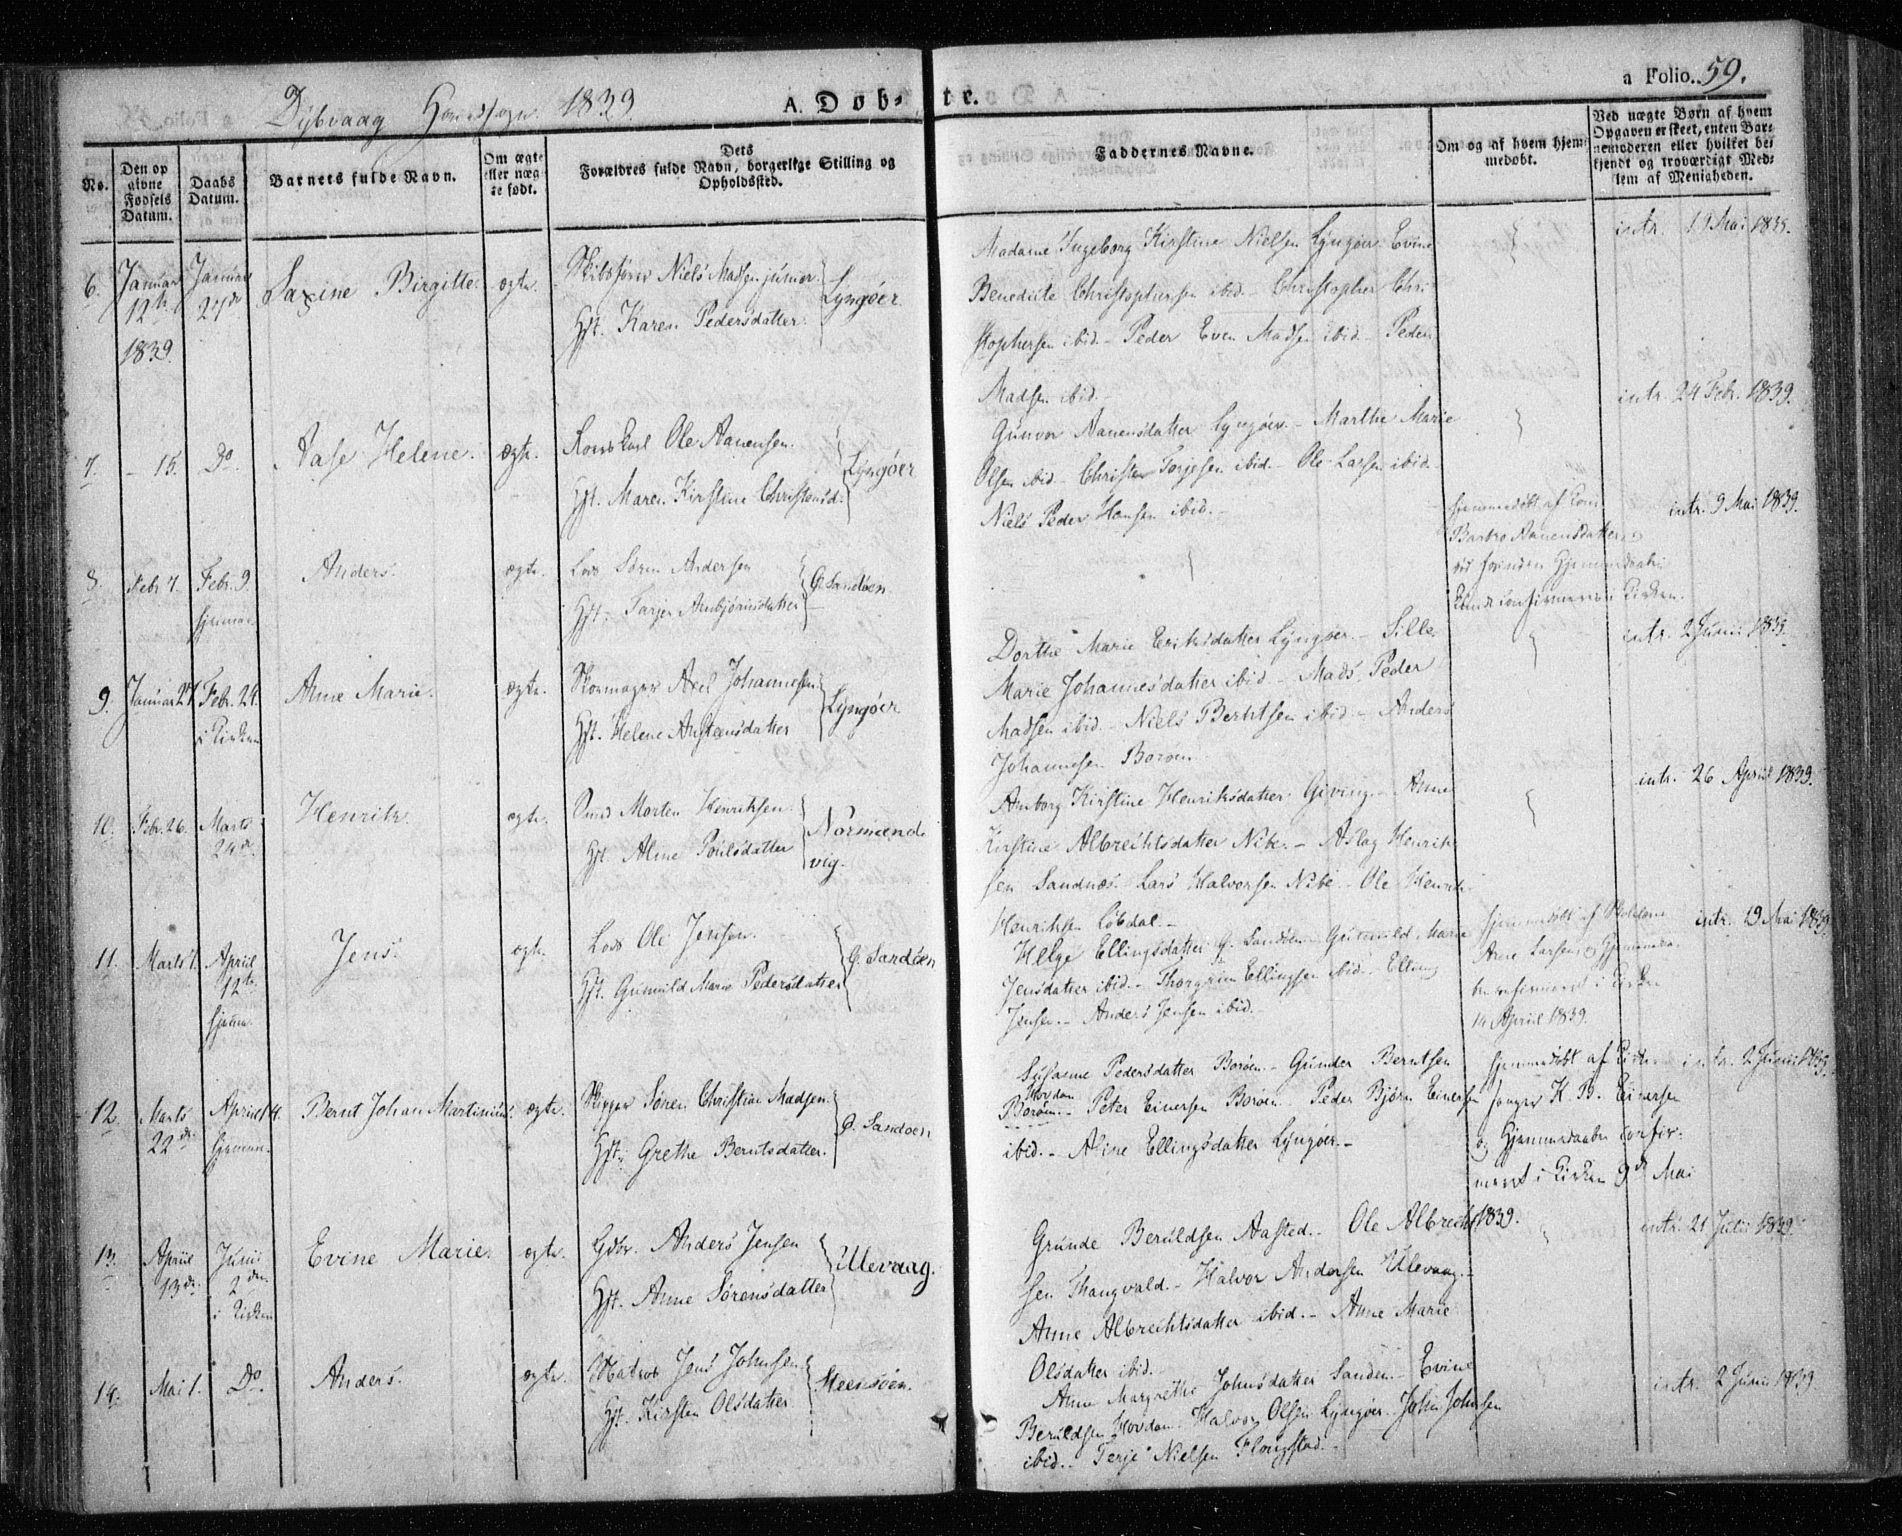 Dybvaag Hovedsogn 1839
A. Døb-
te.
a Folio. 59.
No.
Den op
givne
Fødsels
Datum.
Daabs
Datum.
Barnets fulde Navn.
Om ægte
eller næg
te født.
Dets
Forældres fulde Navn, borgerlige Stilling og
Opholdssted.
Faddernes Navne.
Om og af hvem hjem-
medøbt.
Ved uægte Børn af hvem
Opgaven er skeet, enten Bar-
nemoderen eller hvilket be-
kjendt og troværdigt Med-
lem af Menigheden.
6. Januar
12te
1839.
Januar
27de
Saxine Birgitte
ægte.
Skibsfører Niels Madsen junior.
Hst. Karen Pedersdatter.
Lyngøer
Madame Ingeborg Kirstine Nielsen Lyngøer. Evine
Benedicte Christophersen ibid. - Christopher Chri-
stophersen ibid. - Peder Even Madsen ibid. - Peder
Madsen ibid.
intr. 19 Mai 1839.
7. - 15. Do.
Aase Helene.
ægte.
Ole Aanensen.
Hst. Maren Kirstine Christensd.
Lyngøer
Gunvor Aanensdatter Lyngøer. - Marthe Marie
Olsen ibid - Christen Torjesen ibid. - Ole Larsen ibid.
Niels Peder Hansen ibid. -
intr. 24 Febr. 1839.
8. Febr 7. Febr. 9.
hjemme.
Anders.
ægte.
Lods Søren Andersen
Hst. Tarjer Anbjørnsdatter
G. Sandøen
hjemmedøbt af
Barbro Aanensdatter
Hjemmedaaben
confirmeret i Kirken.
intr. 9 Mai 1839.
9. Januar 27. Febr. 24.
i Kirken
Anne Marie.
ægte.
Skomager Axel Johannesen
Hst. Helene Anstensdatter
Lyngøer
Dorthe Marie Eriksdatter Lyngøer. - Sille
Marie Johannesdatter ibid - Mads Peder
Madsen ibid. - Niels Berntsen ibid. - Anders
Johannesen Borøen
intr. 2 Junii 1839.
10. Febr. 26. Marts
24de.
Henrik
ægte.
Smed Morten Henriksen
Hst Alme Poulsdatter
Normand-
vig.
Anborg Kirstine Henriksdatter Giving. - Anne
Kirstine Albrechtsdatter Nibe. - Aslag Henrik-
sen Sandnæs. Lars Halvorsen Nibe - Ole Henrik
Henriksen Løbdal -
intr. 26 April 1839.
11. Marts 1. April
12te
hjem.
Jens.
ægte.
Lods Ole Jensen.
Hst. Gunuild Marie Pedersdatter
G. Sandøen
Helge Ellingsdatter G. Sandøen - Gunuild Marie
Jensdatter ibid. - Thorgrim Ellingsen ibid. - Elling
Jensen. - Anders Jensen ibid. -
hjemmedøbt af
Anne Larsen, og Hjemmedaa-
ben confirmeret i Kirken
14 April 1839.
intr. 19 Mai 1839.
12. Marts
22de.
April 14.
hjemme.
Bernt Johan Martinius.
ægte.
Skipper Søren Christian Madsen
Hst. Grethe Berntsdatter.
G. Sandøen
Susanne Pedersdatter Borøen. - Gunder Berntsen
Hovdan
Borøen. - Peter Einersen Borøen. Peder Bjørn Einersen
ibid. - Aline Ellingsdatter Lyngøer. -
hjemmedøbt af Kirke-
sanger K. B. Einersen
og Hjemmedaaben confir-
meret i Kirken 9de Mai
1839.
intr. 2 Junii 1839.
13. April
13de.
Junii
2den
i Kirken
Evine Marie.
ægte.
Gdbr. Anders Jensen
Hst. Anne Sørensdatter
Ulevaag.
Grunde Beruldsen Aasted. - Ole Albrecht-
sen Thangvald. - Halvor Andersen Ulevaag. -
Anne Albrechtsdatter ibid. - Anne Marie
Olsdatter ibid.
intr. 21 Julii 1839.
14. Mai 1. Do.
Anders.
ægte.
Matros Jens Johnsen
Hst. Kirsten Olsdatter
Steensøen.
Anne Margrethe Johnsdatter Sanden. - Evine
Beruldsen Hovdan. Halvor Olsen Lyngøer. John Johnsen
ibid. - Terje Nielsen Flougstad. -
intr. 2 Junii 1839